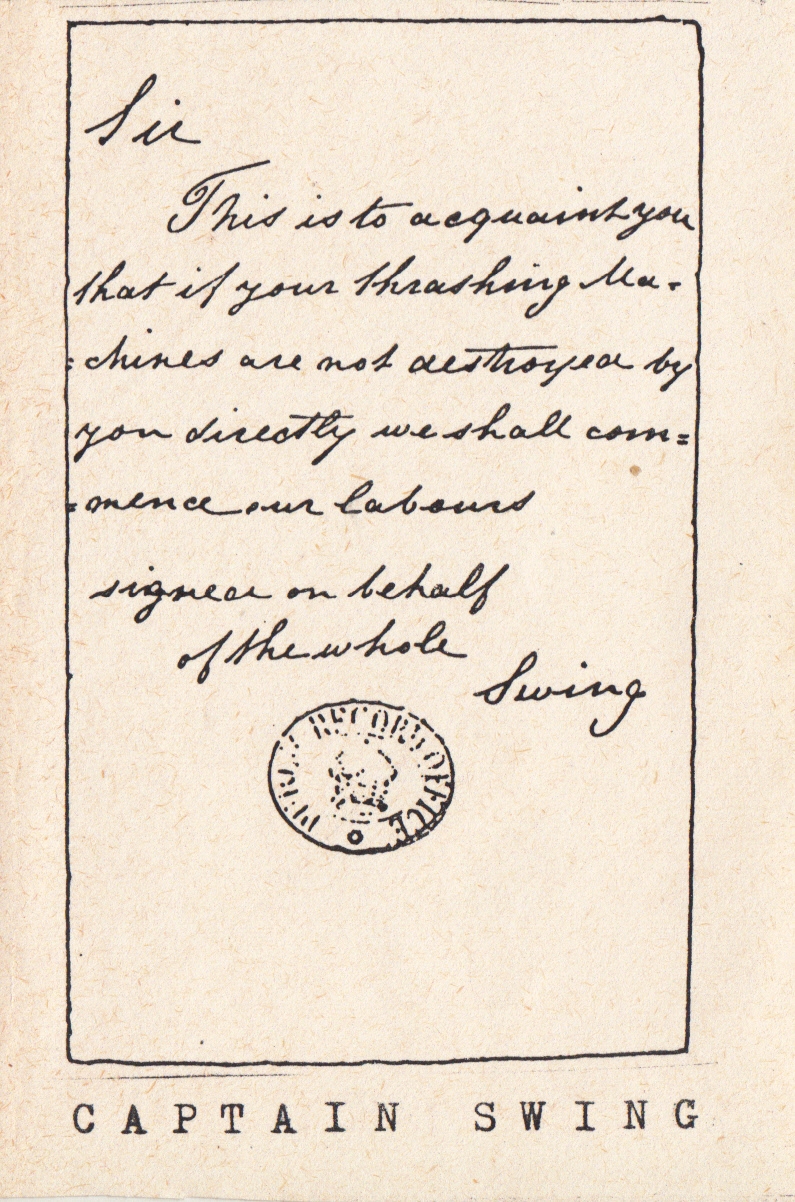 Sir
This is to acquaint you
that if your thrashing Ma-
=chines are not destroyed by
you directly we shall com=
=mence our labours
signed on behalf
of the whole
Swing
PUBLIC RECORD OFFICE
CAPTAIN SWING